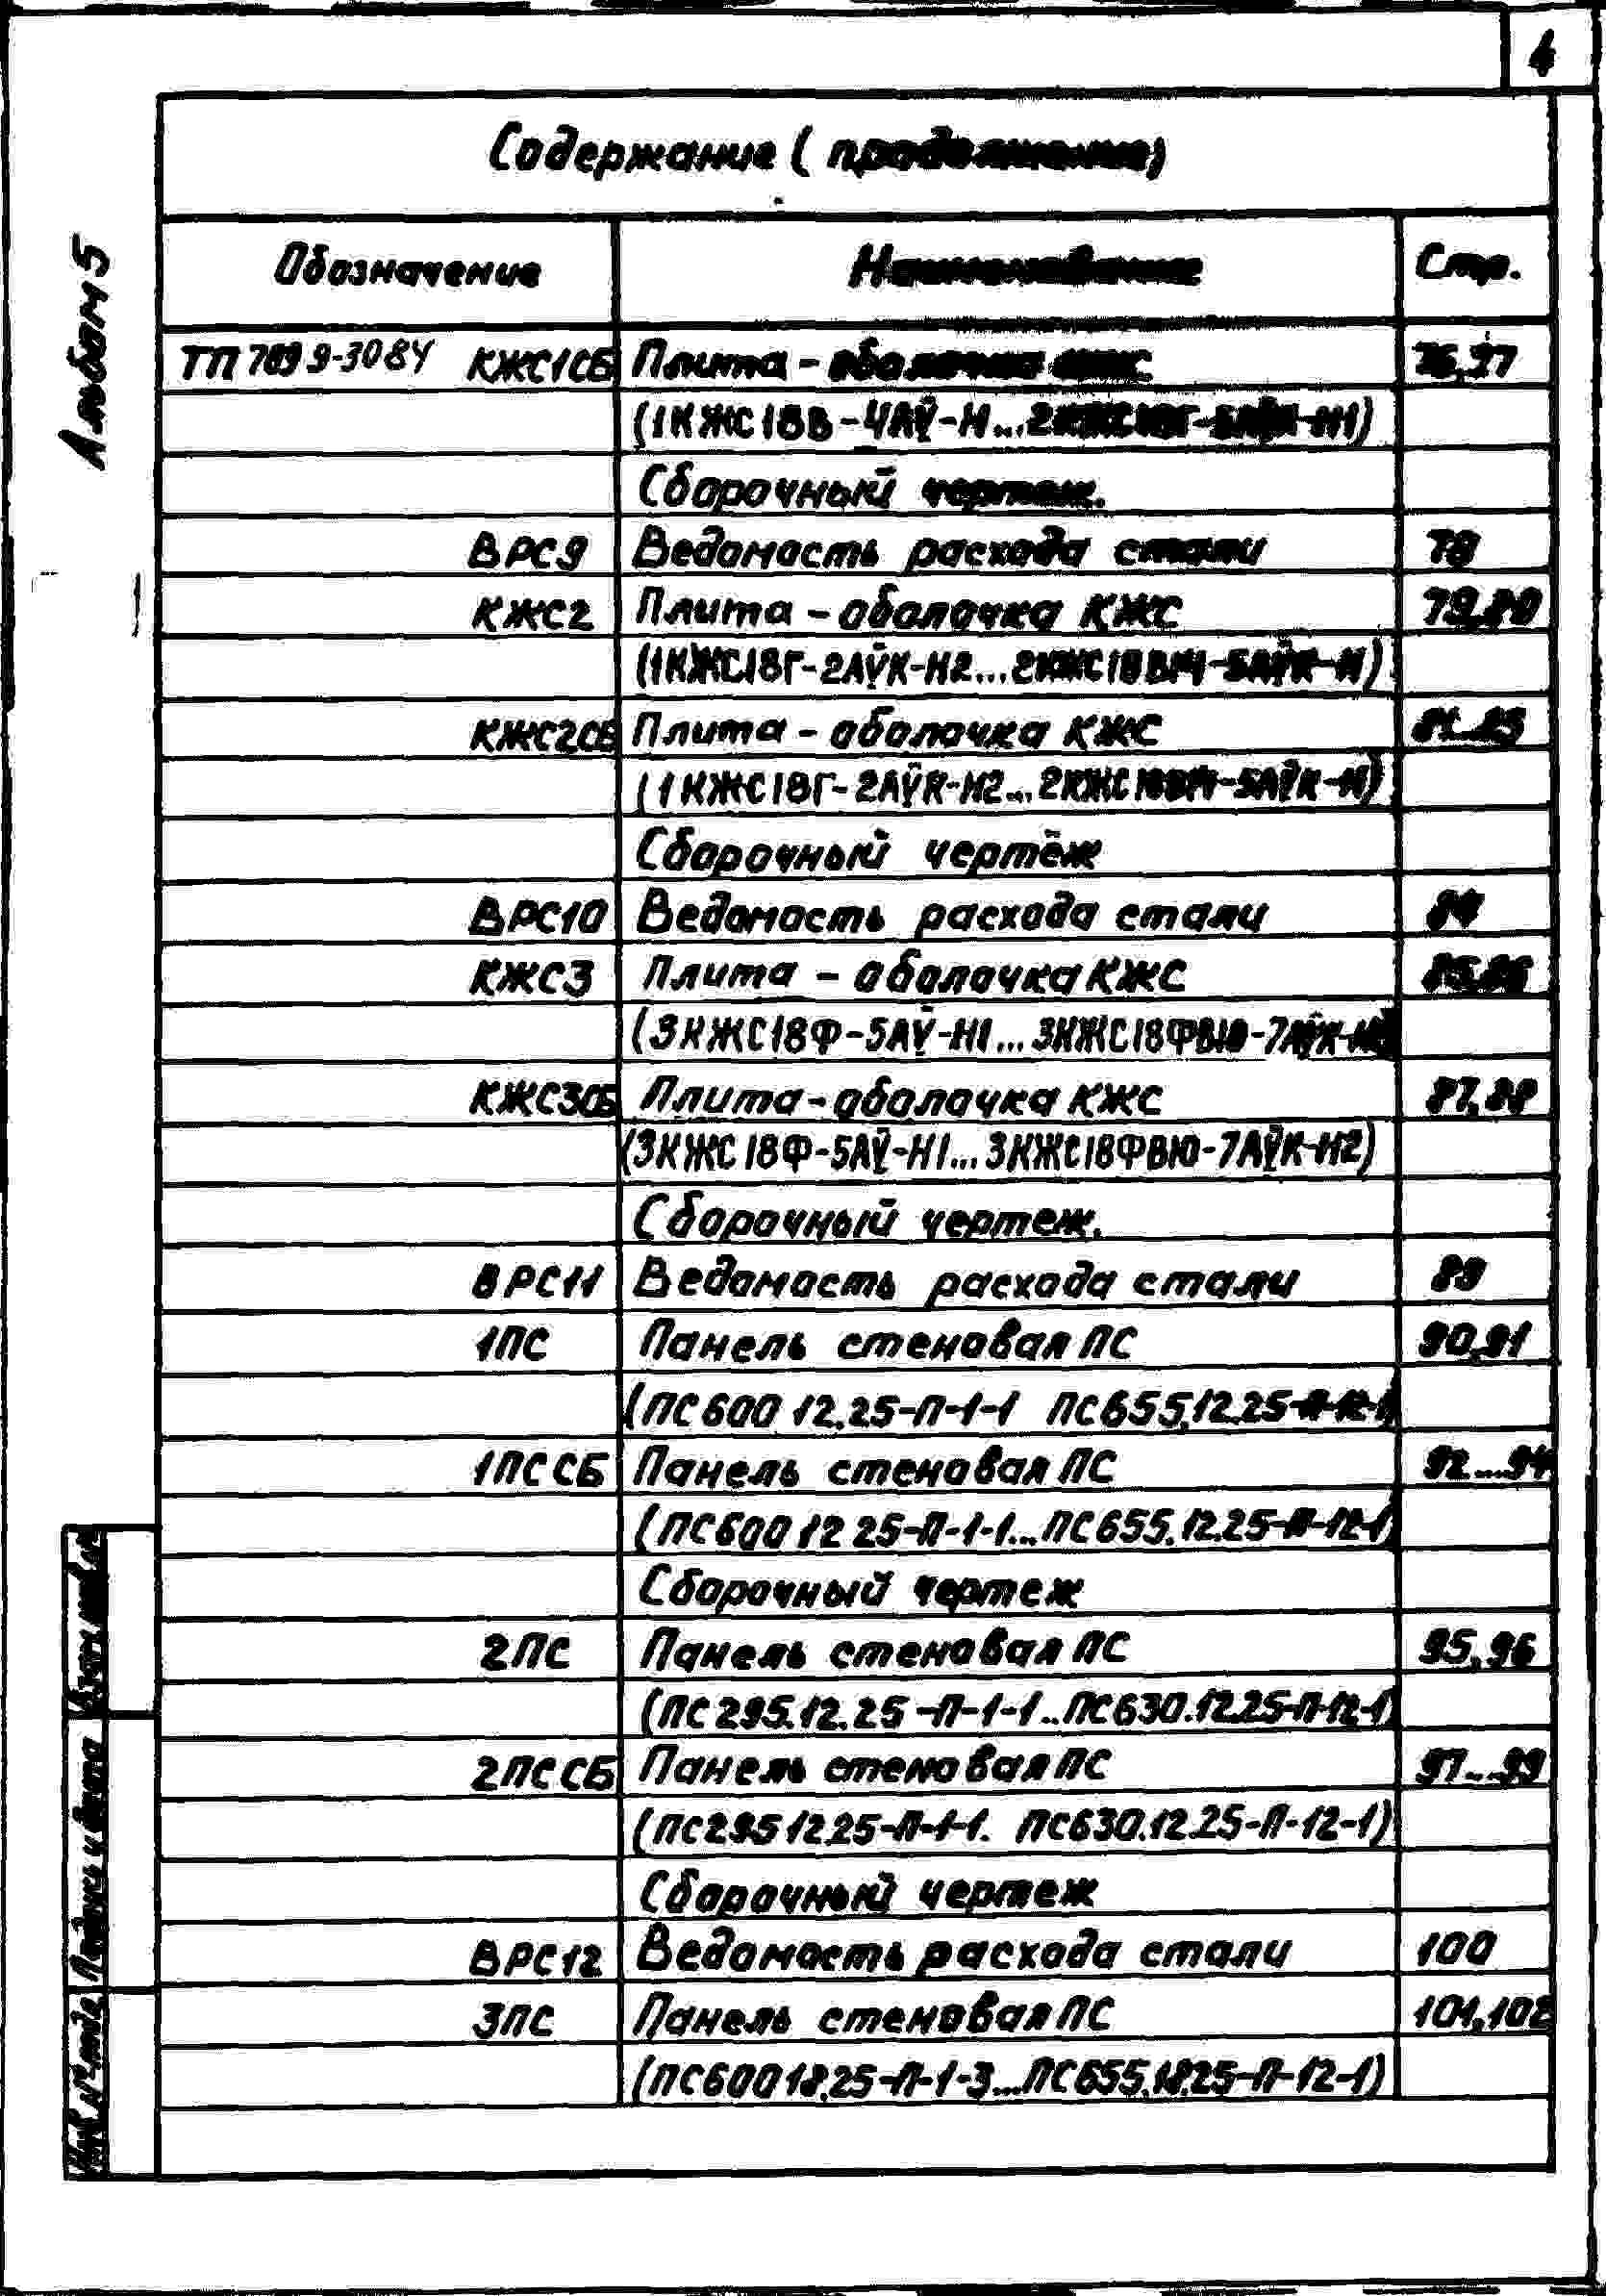 4
Содержание (продолжение)
Альбом 5
Обозначение Наименование Стр.
ТП 709 9-30 84 КЖС1СБ Плита - оболочка КЖС 76,77
(1КЖС18В-4АV-Н...
Сборочный чертеж.
ВРС9 Ведомость расхода стали 78
КЖС2 Плита - оболочка КЖС 79,80
(1КЖС18Г-2АVК-Н2...2КЖС18ВМ-5АVК-Н)
КЖС2СБ Плита - оболочка КЖС 81...83
(1КЖС18Г-2АVК-Н2...2КЖС18ВМ-5АVК-Н)
Сборочный чертёж
ВРС10 Ведомость расхода стали 84
КЖС3 Плита - оболочка КЖС 85,86
(3КЖС18Ф-5АV-Н1...3КЖС18ФВЮ-7АVК-Н2)
КЖС3СБ Плита - оболочка КЖС 87,88
(3КЖС18Ф-5АV-Н1...3КЖС18ФВЮ-7АVК-Н2)
Сборочный чертеж.
ВРС11 Ведомость расхода стали 89
1ПС Панель стеновая ПС 90,91
(ПС600 12.25-П-1-1 ПС655.12.25-П-12-1)
1ПС СБ Панель стеновая ПС 92...94
(ПС600 12 25-П-1-1...ПС655.12.25-П-12-1)
Сборочный чертеж
2ПС Панель стеновая ПС 95,96
(ПС295.12.25-П-1-1..ПС630.12.25-П-12-1)
2ПС СБ Панель стеновая ПС 97...99
(ПС295 12.25-П-1-1. ПС630.12.25-П-12-1)
Сборочный чертеж
ВРС12 Ведомость расхода стали 100
3ПС Панель стеновая ПС 101,102
(ПС600 18.25-П-1-3...ПС655.18.25-П-12-1)
Взам инв №
Подпись и дата
Инв № подл